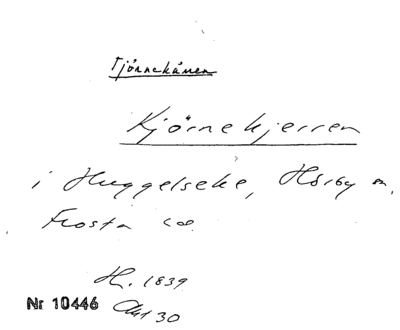 Tjörnekären
Kjörnekjerren
i Huggelseke, Hörby sn,
Frosta
H. 1839
Nr 10446 Akt 30